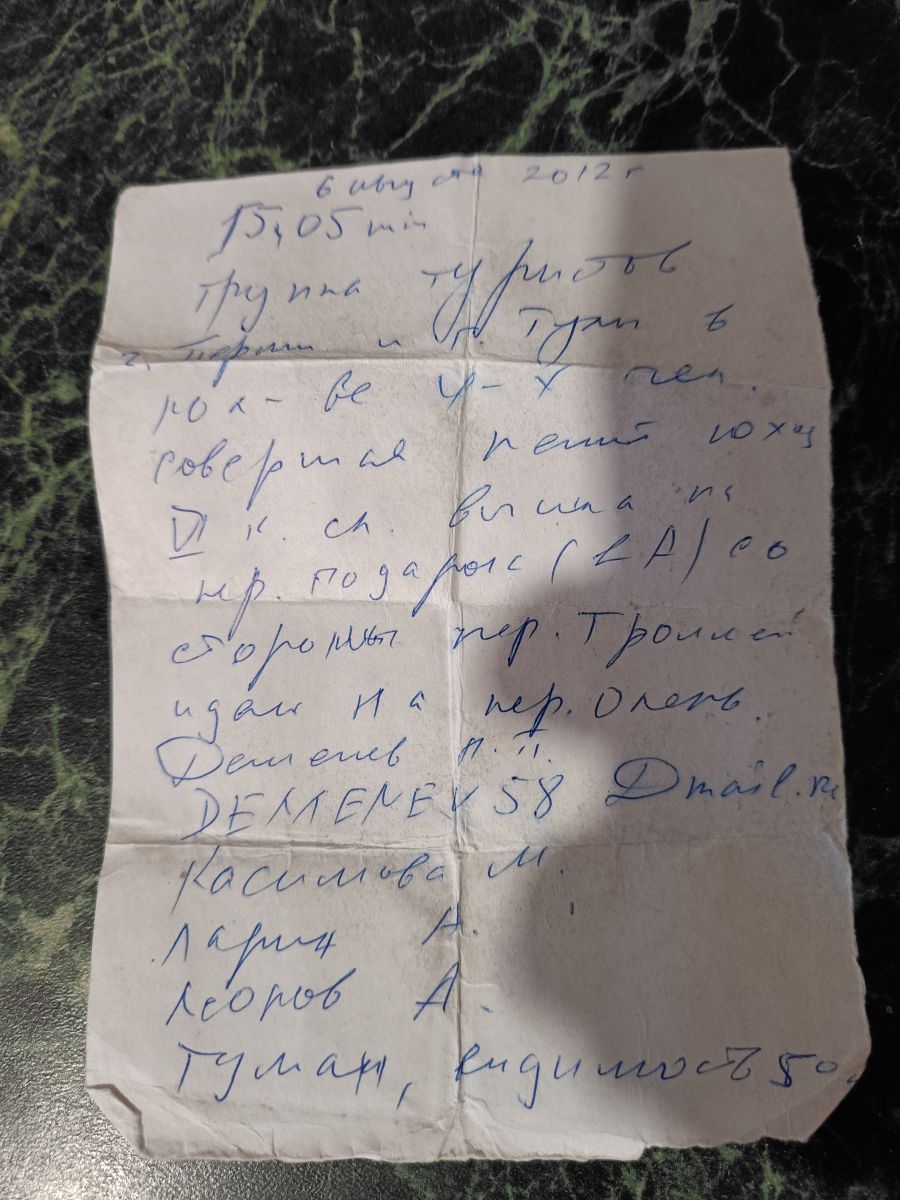 6 августа 2012 г
15,05 min
группа туристов
г. Перми и г. Тулы в
кол-ве 4-х чел.
совершая пеший поход
VI к. сл. вышла на
пер. Подарок (1А) со
стороны пер. Троллей
идем на пер. Олень.
Деменев
DEMENEV58 @mail.ru
Касимова М
Ларин А.
А.
Туман, видимость 50